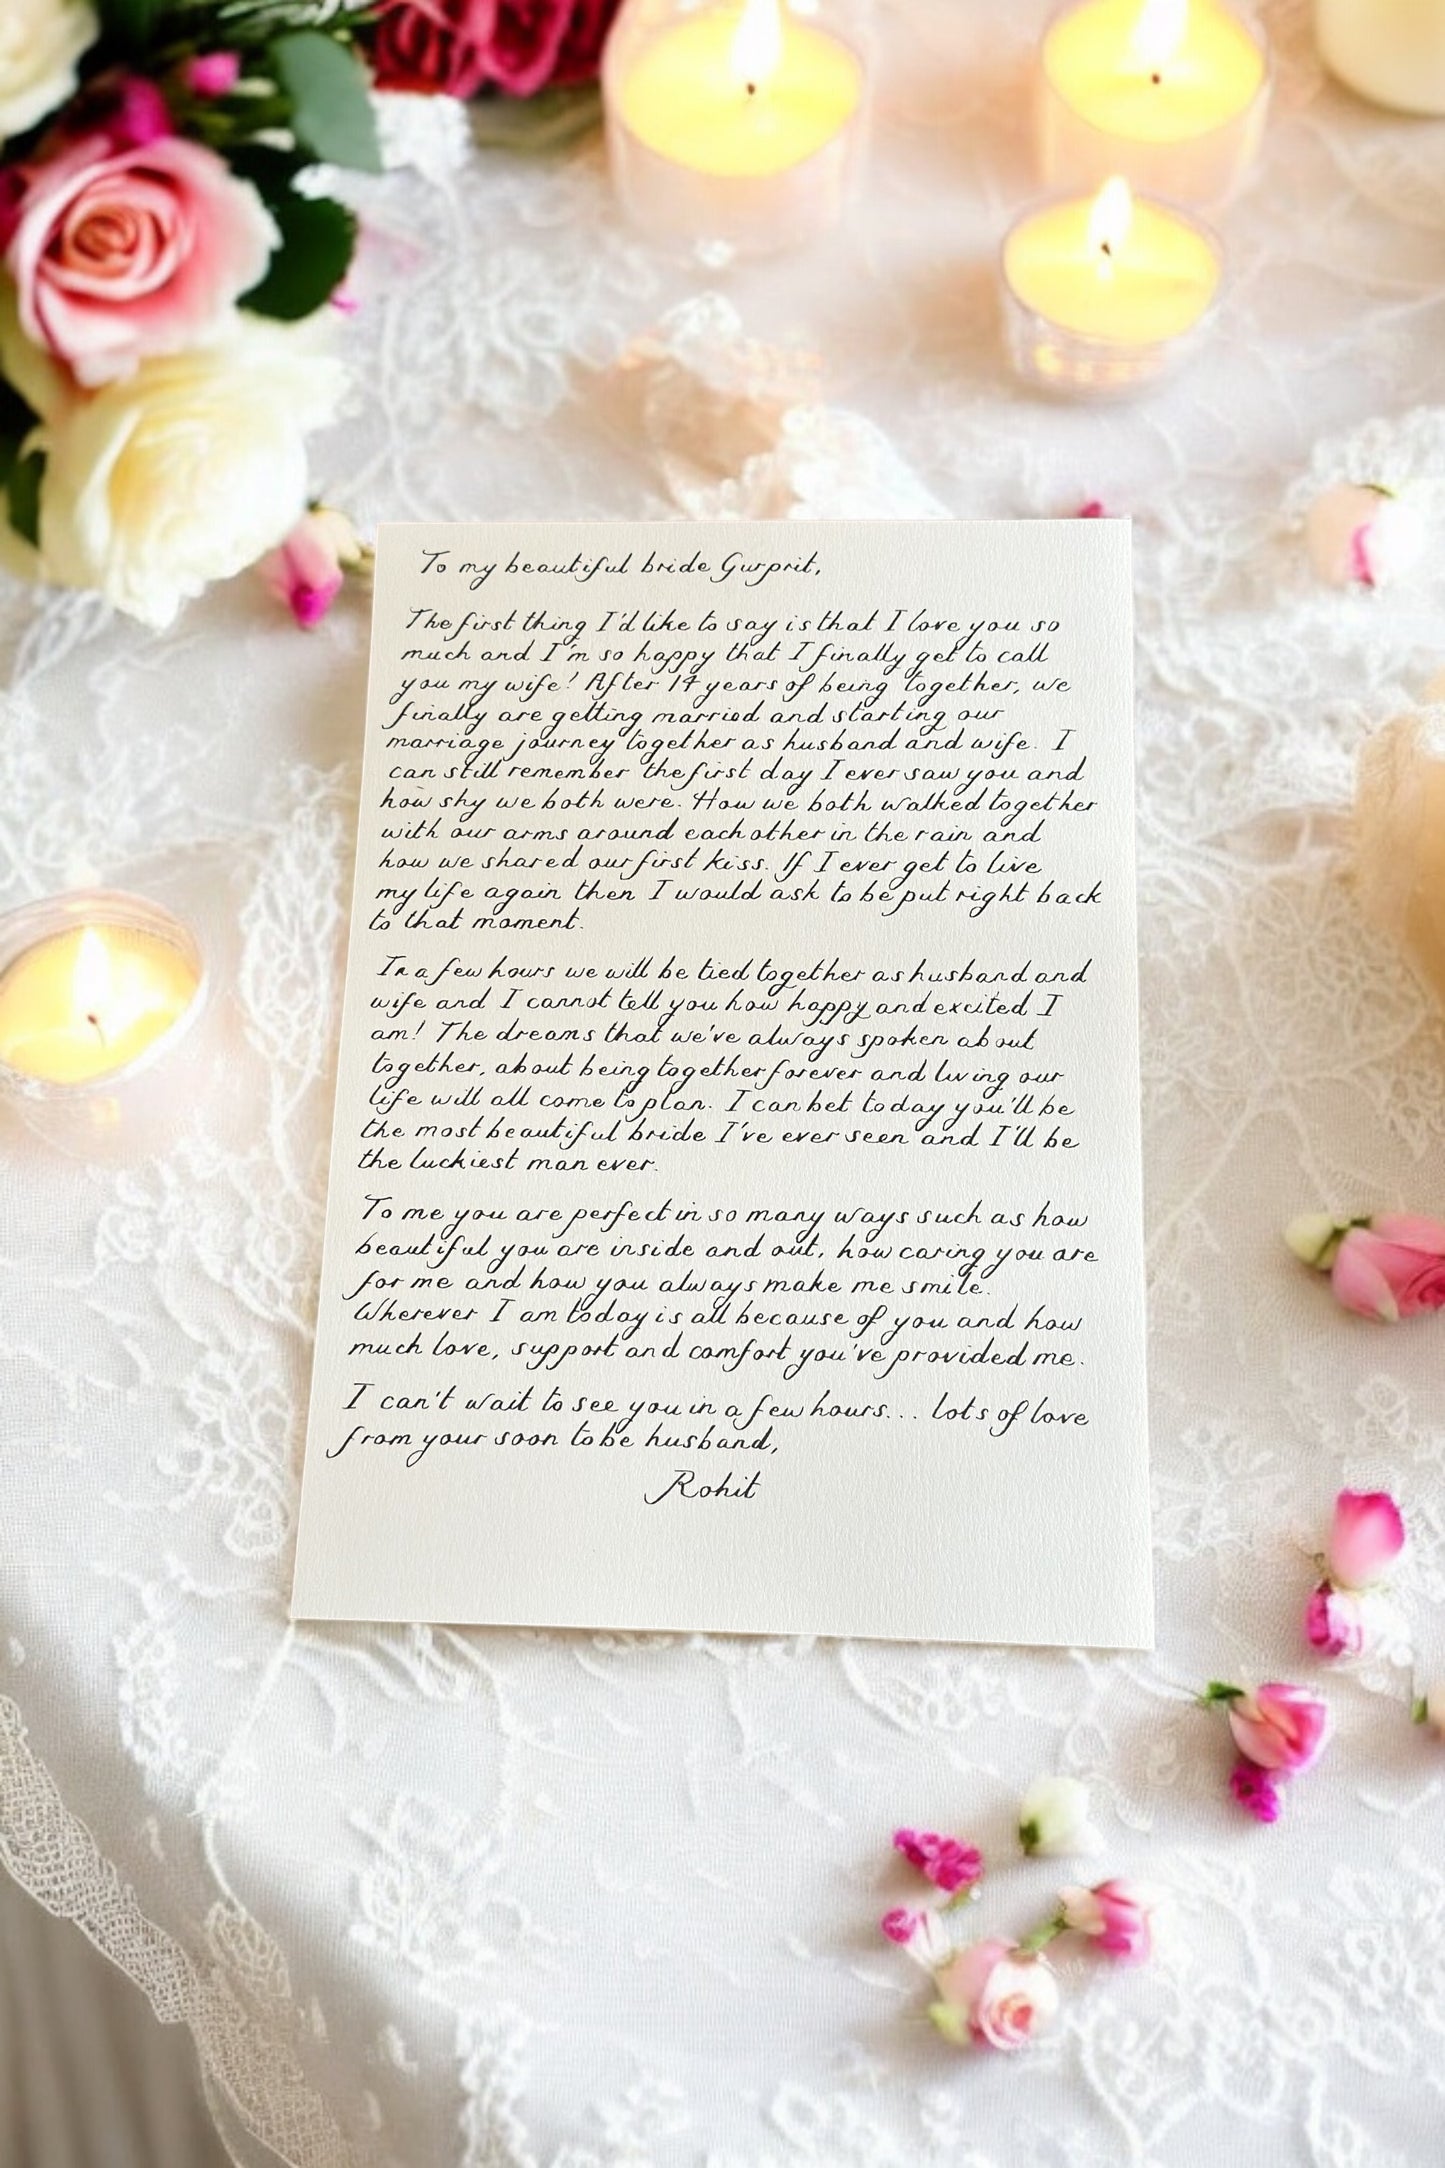 To my beautiful bride Gurprit,
The first thing I'd like to say is that I love you so
much and I'm so happy that I finally get to call
you my wife! After 14 years of being together, we
finally are getting married and starting our
marriage journey together as husband and wife. I
can still remember the first day I ever saw you and
how shy we both were. How we both walked together
with our arms around each other in the rain and
how we shared our first kiss. If I ever get to live
my life again then I would ask to be put right back
to that moment.
In a few hours we will be tied together as husband and
wife and I cannot tell you how happy and excited I
am! The dreams that we've always spoken about
together, about being together forever and living our
life will all come to plan. I can bet today you'll be
the most beautiful bride I've ever seen and I'll be
the luckiest man ever.
To me you are perfect in so many ways such as how
beautiful you are inside and out, how caring you are
for me and how you always make me smile.
Wherever I am today is all because of you and how
much love, support and comfort you've provided me.
I can't wait to see you in a few hours... lots of love
from your soon to be husband,
Rohit